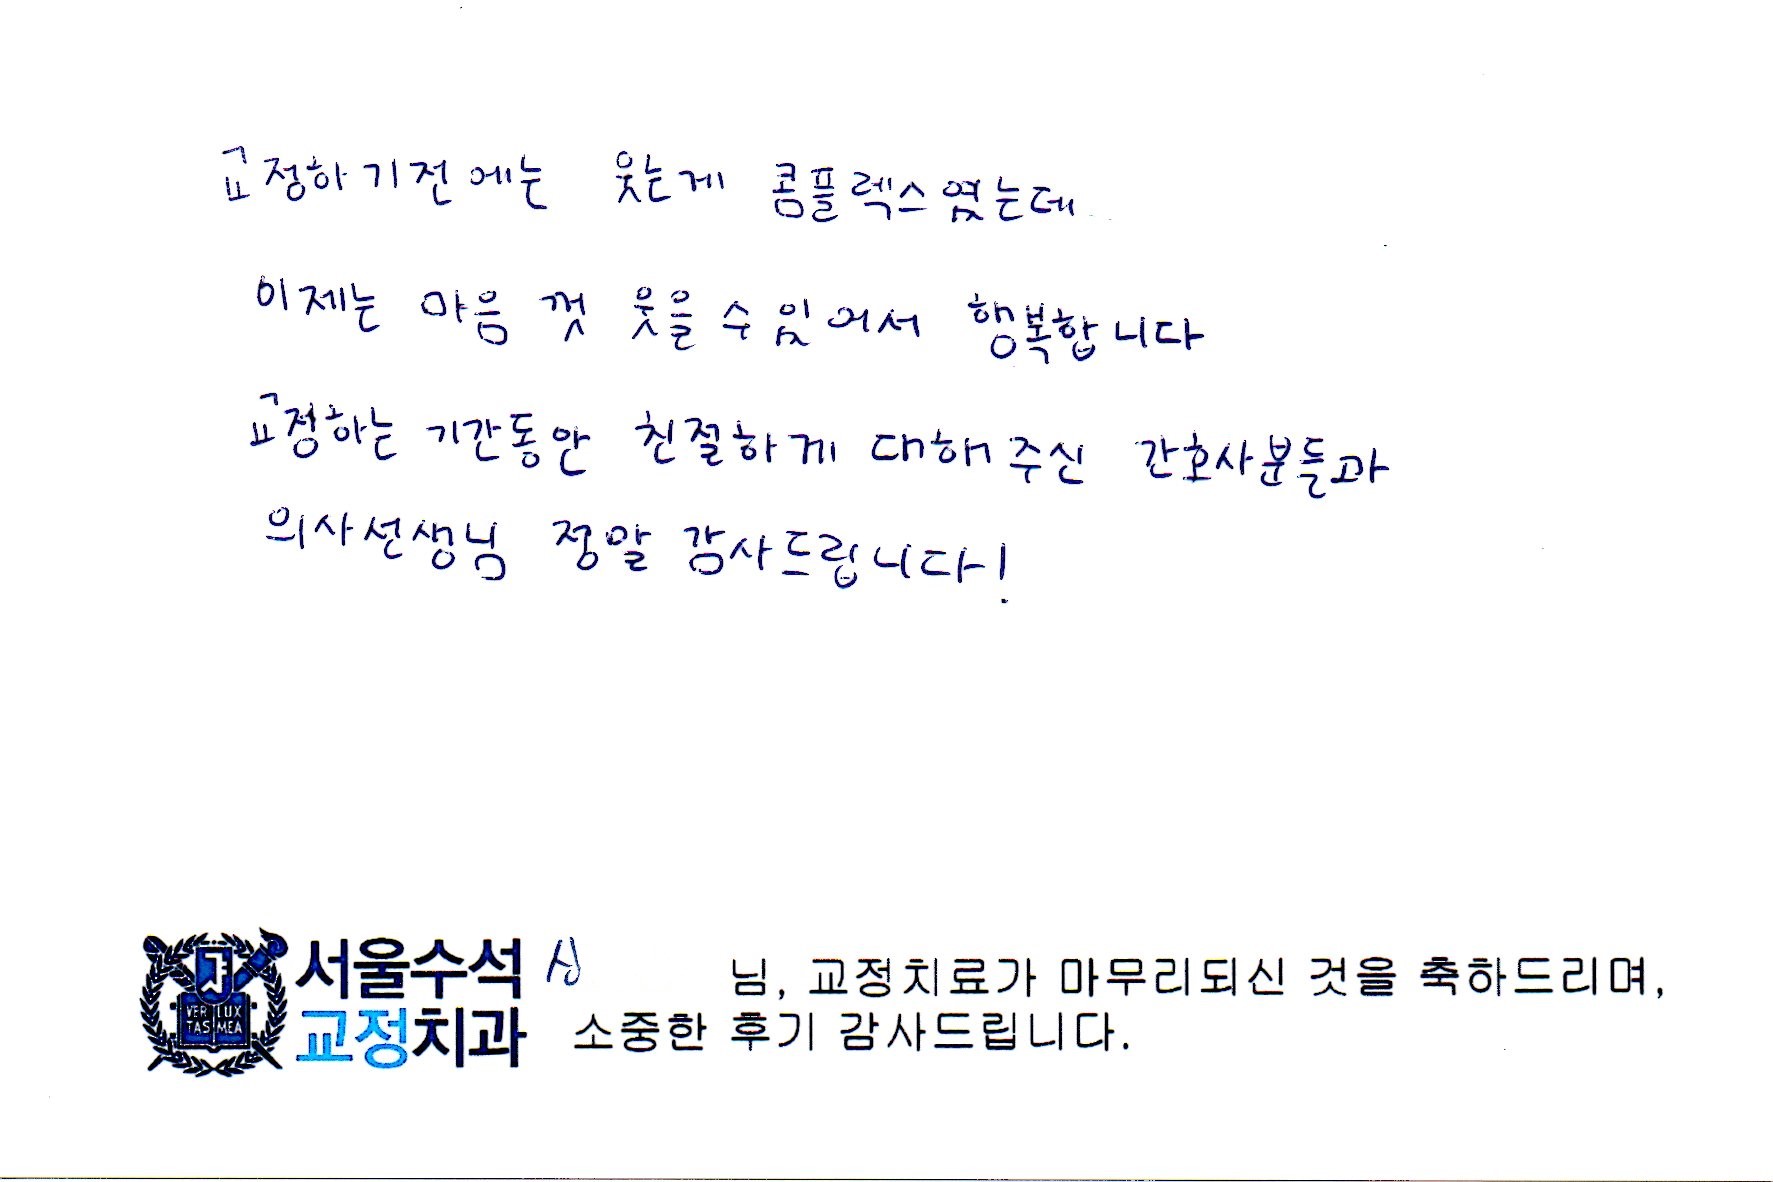 교정하기전에는 웃는게 콤플렉스였는데
이제는 마음 껏 웃을 수 있어서 행복합니다
교정하는 기간동안 친절하게 대해주신 간호사분들과
의사선생님 정말 감사드립니다!
서울수석
교정치과
VERI LUX
TAS MEA
심 님, 교정치료가 마무리되신 것을 축하드리며,
소중한 후기 감사드립니다.